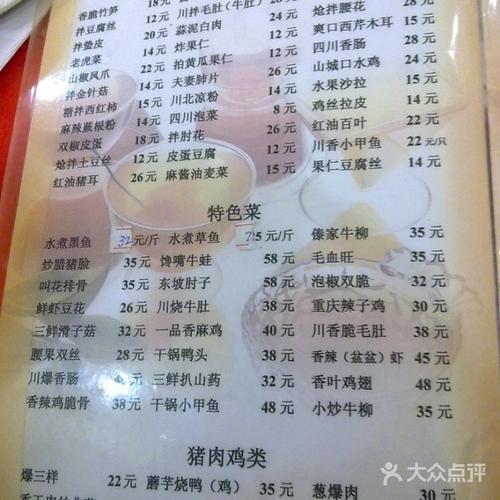 香脆竹笋 18元 川拌毛肚(牛肚) 炝拌腰花 28元
拌豆腐丝 12元 蒜泥白肉 24元 爽口西芹木耳
拌蛰皮 22元 炸果仁 14元 四川香肠 28元
老虎菜 12元 拍黄瓜果仁 12元 山城口水鸡 24元
山椒凤爪 22元 夫妻肺片 水果沙拉 15元
拌金针菇 14元 川北凉粉 14元 鸡丝拉皮 14元
糖拌西红柿 15元 四川泡菜 红油百叶 22元
麻辣蕨根粉 拌肘花 28元 川香小甲鱼
双椒皮蛋 18元 皮蛋豆腐 12元 果仁豆腐丝 14元
炝拌土豆丝 12元 麻酱油麦菜 15元
红油猪耳 26元
特色菜
水煮黑鱼 32元/斤 水煮草鱼 25元/斤 傣家牛柳 35元
炒腊猪脸 35元 馋嘴牛蛙 58元 毛血旺 35元
叫花排骨 35元 东坡肘子 58元 泡椒双脆 32元
鲜虾豆花 30元 川烧牛肚 38元 重庆辣子鸡 30元
三鲜滑子菇 32元 一品香麻鸡 40元 川香脆毛肚 38元
腰果双丝 28元 干锅鸭头 38元 香辣(盆盆)虾 45元
川爆香肠 44元 三鲜扒山药 32元 香叶鸡翅 48元
香辣鸡脆骨 38元 干锅小甲鱼 48元 小炒牛柳 35元
猪肉鸡类
爆三样 22元 蘑芋烧鸭(鸡) 35元 葱爆肉 30元
大众点评